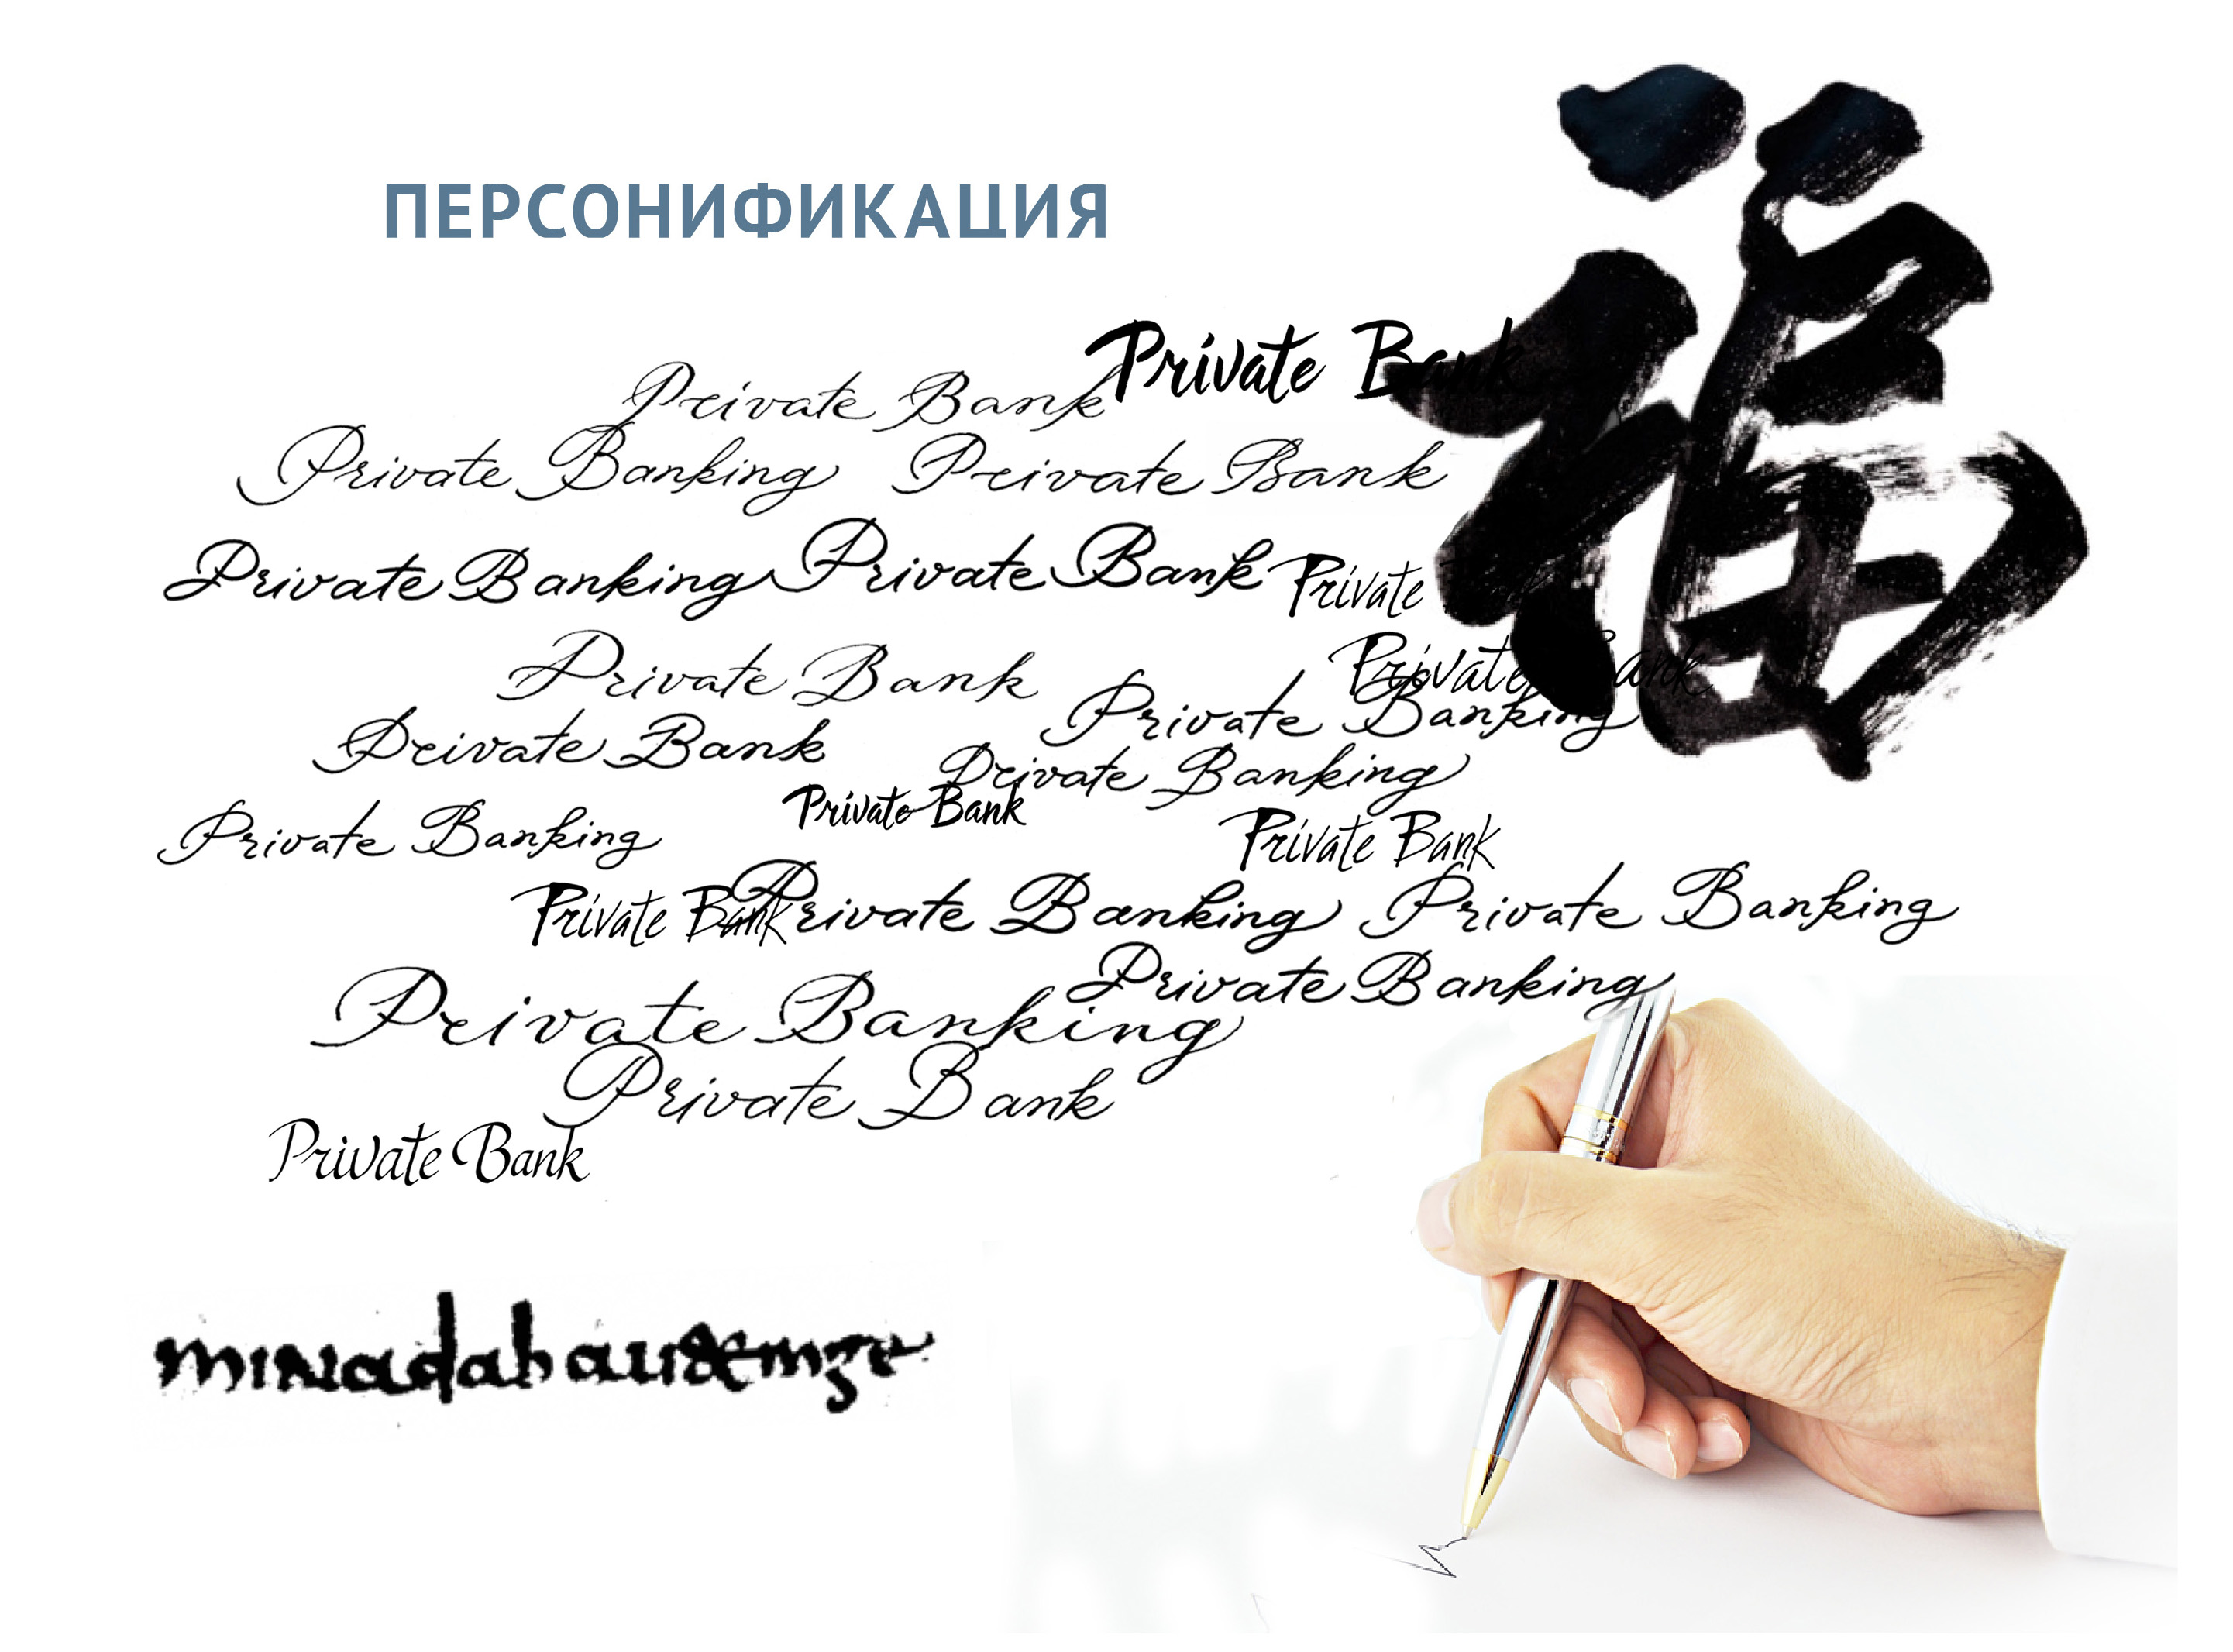 ПЕРСОНИФИКАЦИЯ
福
Private Bank
Private Bank
Private Banking
Private Bank
Private Banking
Private Bank
Private
Private Bank
Private Bank
Private Banking
Private Bank
Private Banking
Private Bank
Private Banking
Private Bank
Private Bank
Private Banking
Private Banking
Private Banking
Private Banking
Private Bank
Private Bank